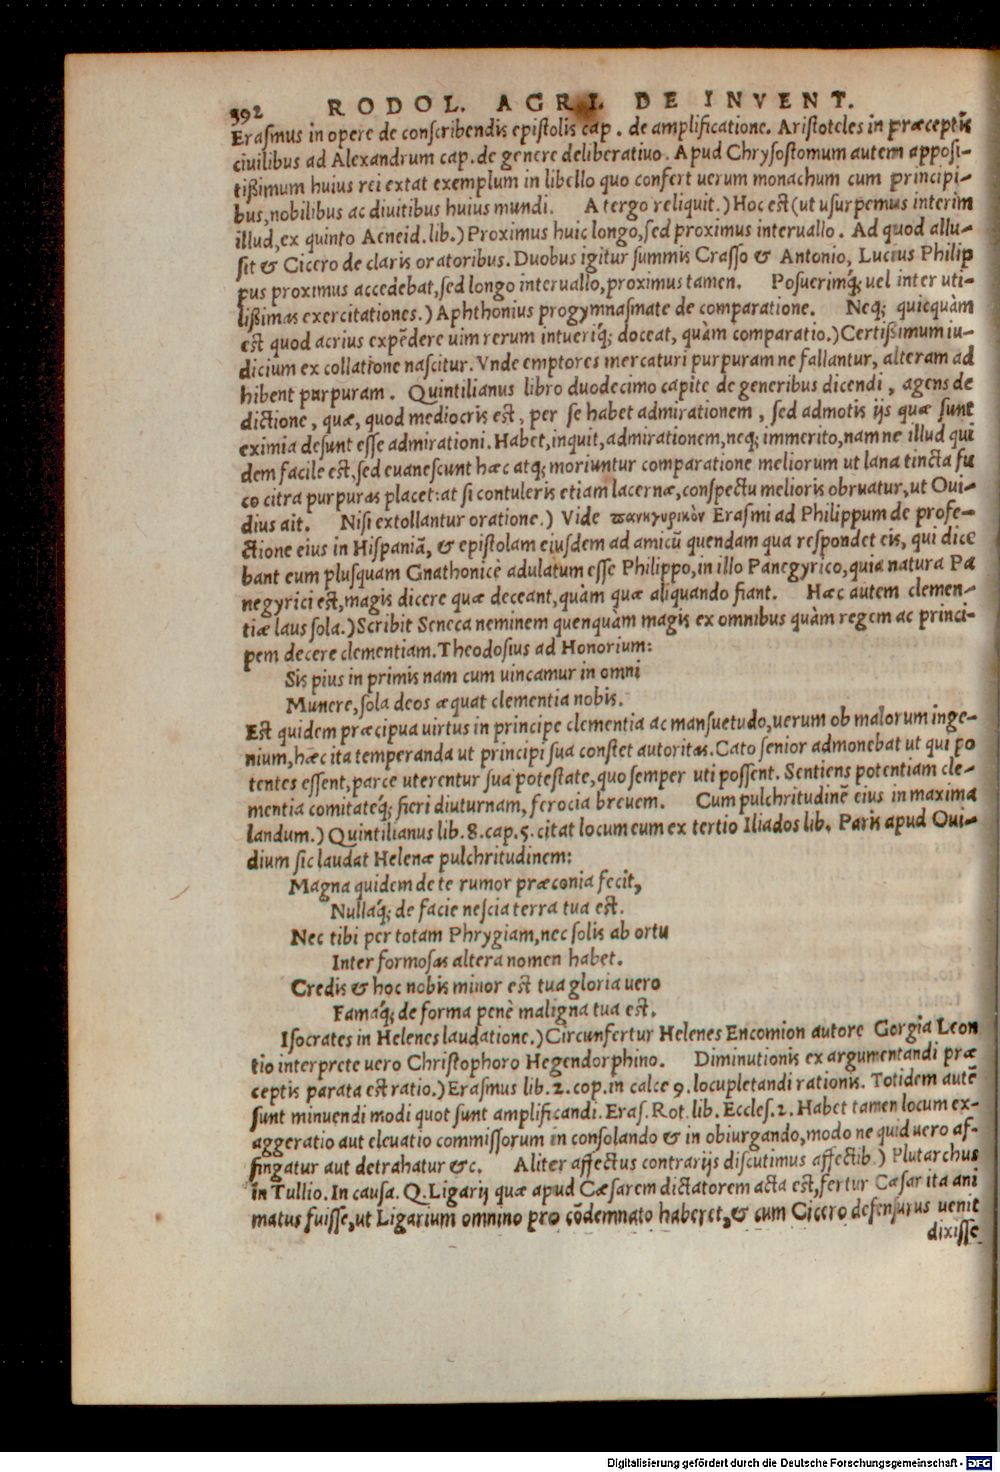 392 RODOL. AGRI. DE INVENT.
Erasmus in opere de conscribendis epistolis cap. de amplificatione. Aristoteles in præceptis
ciuilibus ad Alexandrum cap. de genere deliberatiuo. Apud Chrysostomum autem apposi-
tißimum huius rei extat exemplum in libello quo confert uerum monachum cum principi-
bus, nobilibus ac diuitibus huius mundi. A tergo reliquit.) Hoc est (ut usurpemus interim
illud, ex quinto Aeneid. lib.) Proximus huic longo, sed proximus interuallo. Ad quod allu-
sit & Cicero de claris oratoribus. Duobus igitur summis Crasso & Antonio, Lucius Philip
pus proximus accedebat, sed longo interuallo, proximus tamen. Posuerimq́; uel inter uti-
lißimas exercitationes.) Aphthonius progymnasmate de comparatione. Neq; quicquàm
est quod acrius expēdere uim rerum intueriq́; doceat, quàm comparatio.) Certißimum iu-
dicium ex collatione nascitur. Vnde emptores mercaturi purpuram ne fallantur, alteram ad
hibent purpuram. Quintilianus libro duodecimo capite de generibus dicendi, agens de
dictione, quæ, quod mediocris est, per se habet admirationem, sed admotis ijs quæ sunt
eximia desunt esse admirationi. Habet, inquit, admirationem, neq; immerito, nam ne illud qui
dem facile est, sed euanescunt hæc atq; moriuntur comparatione meliorum ut lana tincta fu
co citra purpuras placet: at si contuleris etiam lacernæ, conspectu melioris obruatur, ut Oui-
dius ait. Nisi extollantur oratione.) Vide πανηγυρικὸν Erasmi ad Philippum de profe-
ctione eius in Hispaniā, & epistolam eiusdem ad amicū quendam qua respondet eis, qui dice
bant eum plusquam Gnathonicè adulatum esse Philippo, in illo Panegyrico, quia natura Pa
negyrici est, magis dicere quæ deceant, quàm quæ aliquando fiant. Hæc autem clemen-
tiæ laus sola.) Scribit Seneca neminem quenquàm magis ex omnibus quàm regem ac princi-
pem decere clementiam. Theodosius ad Honorium:
Sis pius in primis nam cum uincamur in omni
Munere, sola deos æquat clementia nobis.
Est quidem præcipua uirtus in principe clementia ac mansuetudo, uerum ob malorum inge-
nium, hæc ita temperanda ut principi sua constet autoritas. Cato senior admonebat ut qui po
tentes essent, parce uterentur sua potestate, quo semper uti possent. Sentiens potentiam cle-
mentia comitateq́; fieri diuturnam, ferocia breuem. Cum pulchritudinē eius in maxima
landum.) Quintilianus lib. 8. cap. 5. citat locum eum ex tertio Iliados lib. Paris apud Oui-
dium sic laudat Helenæ pulchritudinem:
Magna quidem de te rumor præconia fecit,
Nullaq́; de facie nescia terra tua est.
Nec tibi per totam Phrygiam, nec solis ab ortu
Inter formosas altera nomen habet.
Credis & hoc nobis minor est tua gloria uero
Famaq́; de forma penè maligna tua est.
Isocrates in Helenes laudatione.) Circunfertur Helenes Encomion autore Gorgia Leon
tio interprete uero Christophoro Hegendorphino. Diminutionis ex argumentandi præ
ceptis parata est ratio.) Erasmus lib. 2. cop. in calce 9. locupletandi rationis. Totidem autē
sunt minuendi modi quot sunt amplificandi. Eras. Rot. lib. Eccles. 2. Habet tamen locum ex-
aggeratio aut eleuatio commissorum in consolando & in obiurgando, modo ne quid uero af-
fingatur aut detrahatur &c. Aliter affectus contrarijs discutimus affectib.) Plutarchus
in Tullio. In causa. Q. Ligarij quæ apud Cæsarem dictatorem acta est, fertur Cæsar ita ani
matus fuisse, ut Ligarium omnino pro cōdemnato haberet, & cum Cicero defensurus uenit
dixisse
Digitalisierung gefördert durch die Deutsche Forschungsgemeinschaft - DFG